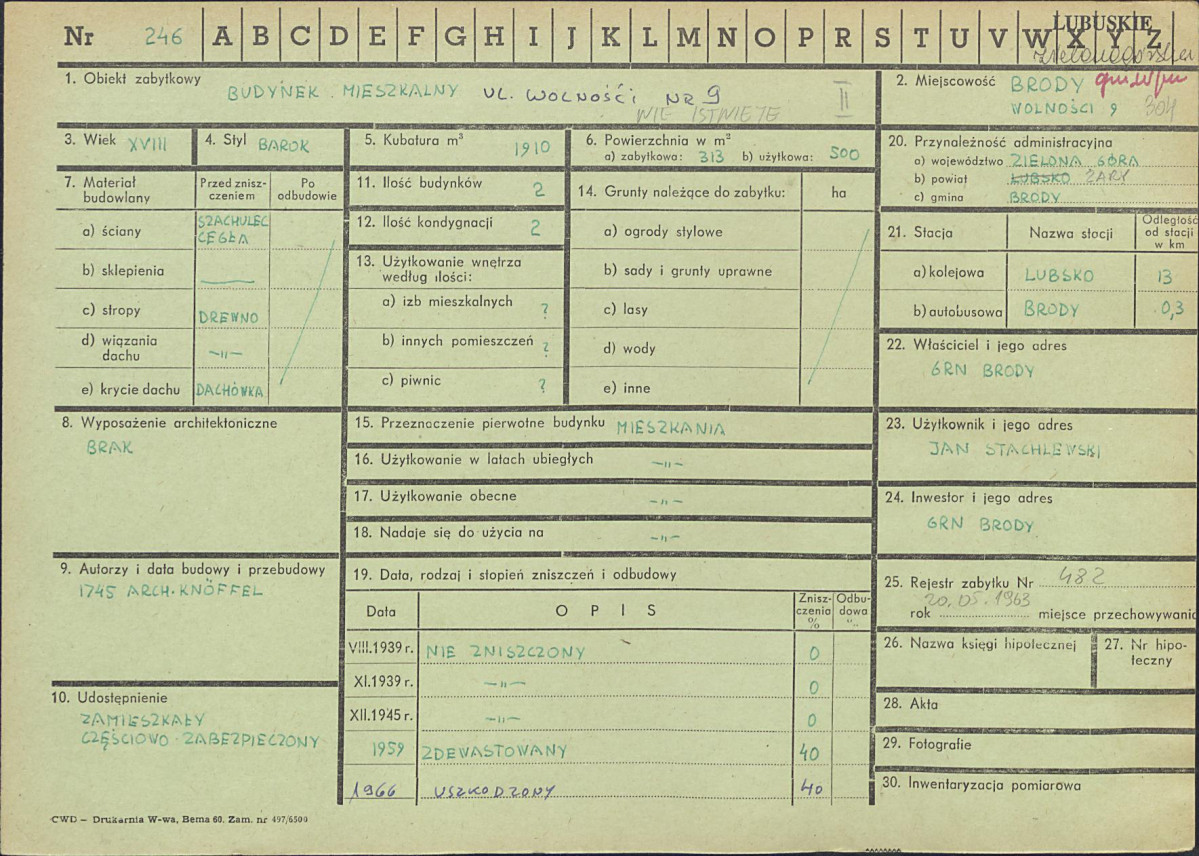 Nr 246 A B C D E F G H I J K L M N O P R S T U V W X Y Z
LUBUSKIE
1. Obiekt zabytkowy
BUDYNEK MIESZKALNY UL. WOLNOŚCI NR 9
NIE ISTNIEJE
II
2. Miejscowość BRODY
WOLNOŚCI 9 304
3. Wiek XVIII
4. Styl BAROK
5. Kubatura m³
1910
6. Powierzchnia w m²
a) zabytkowa: 313 b) użytkowa: 500
20. Przynależność administracyjna
a) województwo ZIELONA GÓRA
b) powiat LUBSKO ŻARY
c) gmina BRODY
7. Materiał budowlany
Przed zniszczeniem
Po odbudowie
a) ściany SZACHULEC
CEGŁA
b) sklepienia —
c) stropy DREWNO
d) wiązania dachu —„—
e) krycie dachu DACHÓWKA
11. Ilość budynków 2
12. Ilość kondygnacji 2
13. Użytkowanie wnętrza
według ilości:
a) izb mieszkalnych ?
b) innych pomieszczeń ?
c) piwnic ?
14. Grunty należące do zabytku: ha
a) ogrody stylowe
b) sady i grunty uprawne
c) lasy
d) wody
e) inne
21. Stacja Nazwa stacji Odległość od stacji w km
a) kolejowa LUBSKO 13
b) autobusowa BRODY 0,3
22. Właściciel i jego adres
GRN BRODY
8. Wyposażenie architektoniczne
BRAK
15. Przeznaczenie pierwotne budynku MIESZKANIA
16. Użytkowanie w latach ubiegłych —„—
17. Użytkowanie obecne —„—
18. Nadaje się do użycia na —„—
23. Użytkownik i jego adres
JAN STACHLEWSKI
24. Inwestor i jego adres
GRN BRODY
9. Autorzy i data budowy i przebudowy
1745 ARCH. KNÖFFEL
19. Data, rodzaj i stopień zniszczeń i odbudowy
Data OPIS Zniszczenia % Odbudowa %
VIII.1939 r. NIE ZNISZCZONY 0
XI.1939 r. —„— 0
XII.1945 r. —„— 0
1959 ZDEWASTOWANY 40
1966 USZKODZONY 40
25. Rejestr zabytku Nr 482
20.05.1963
rok miejsce przechowywania
26. Nazwa księgi hipotecznej
27. Nr hipoteczny
10. Udostępnienie
ZAMIESZKAŁY
CZĘŚCIOWO ZABEZPIECZONY
28. Akta
29. Fotografie
30. Inwentaryzacja pomiarowa
CWD – Drukarnia W-wa, Bema 60. Zam. nr 497/6500